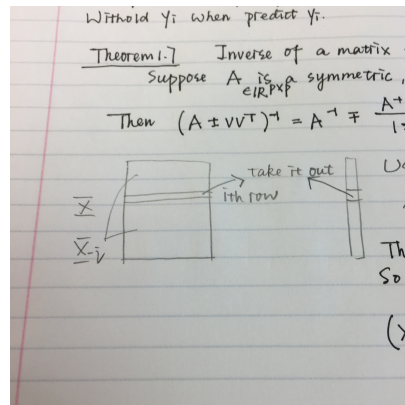 Withold yi when predict yi.
Theorem 1.7 Inverse of a matrix
Suppose A is a symmetric,
∈ℝ^{p×p}
Then (A ± VVᵀ)⁻¹ = A⁻¹ ∓
take it out
ith row
X̄
X̄-i
Th
So
(X